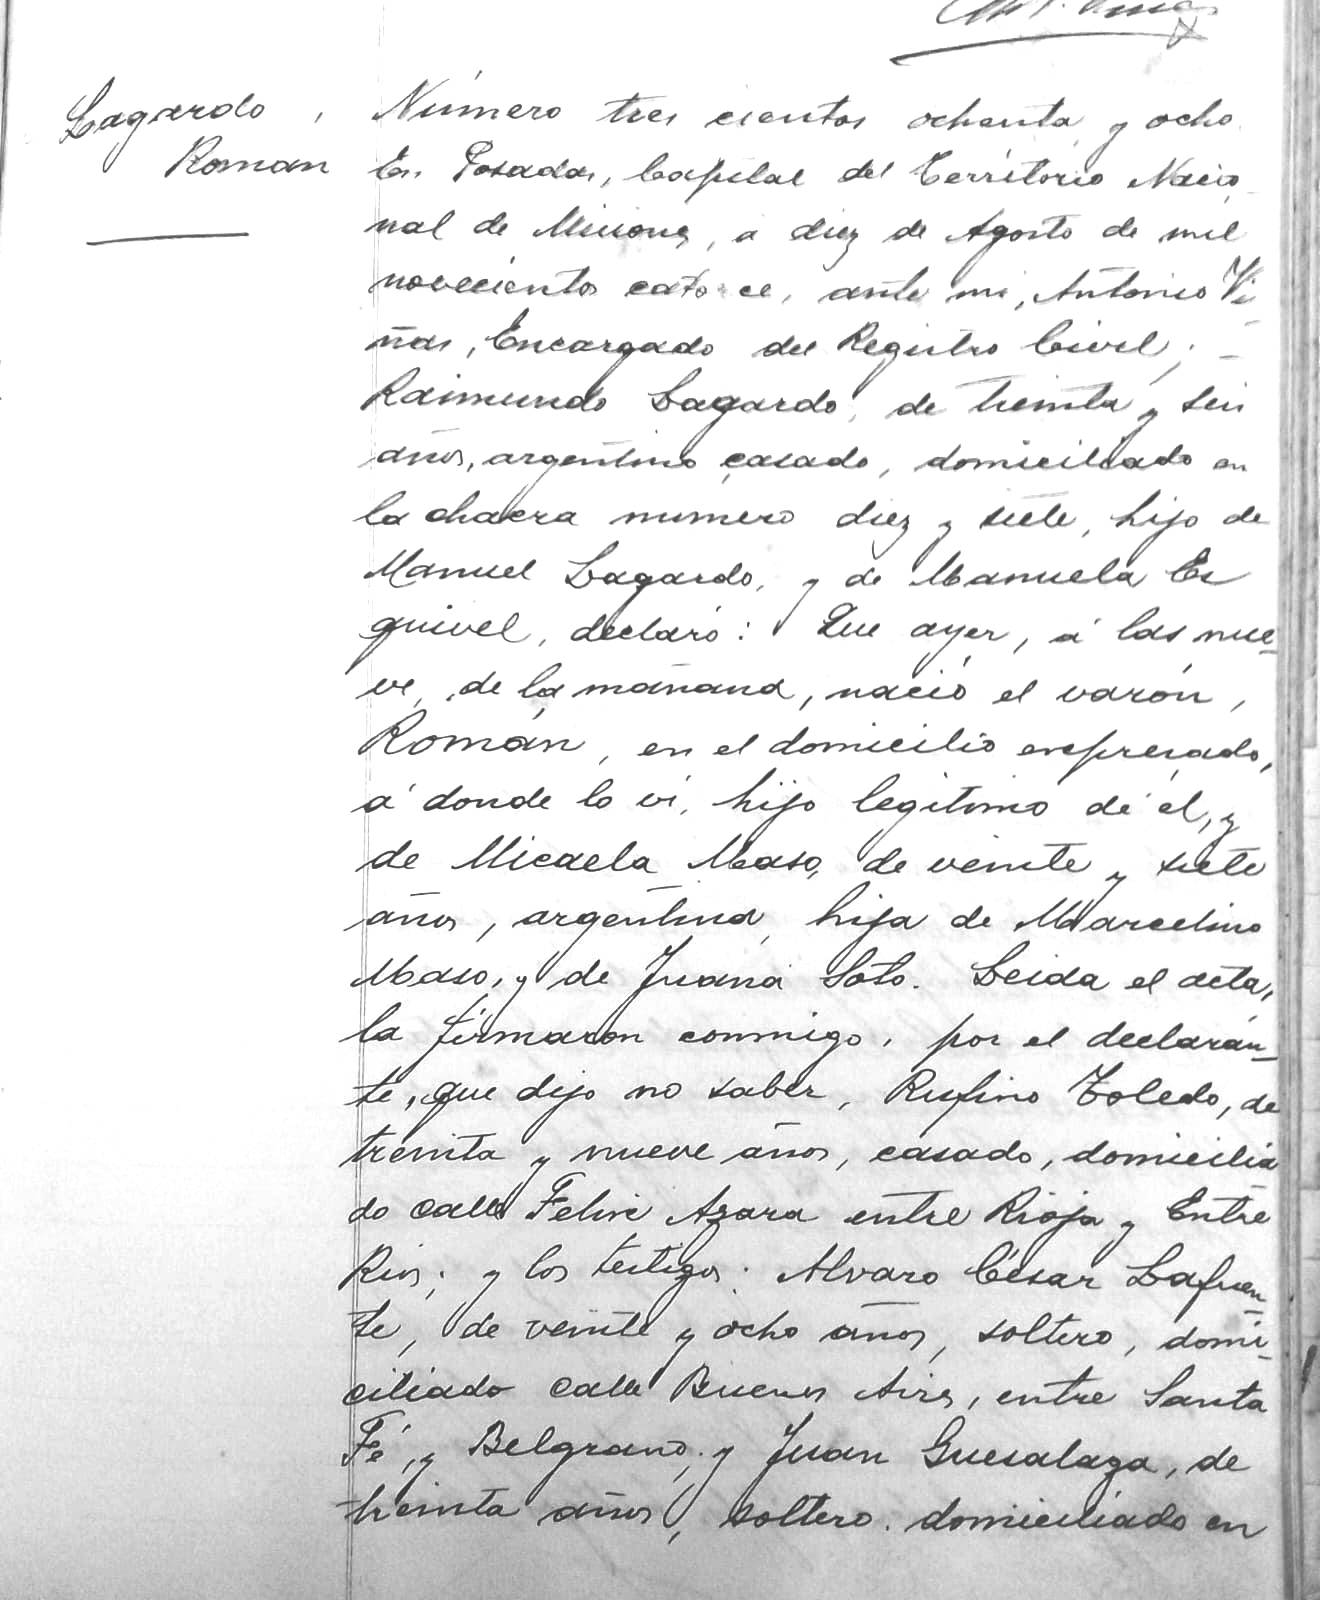 Lagardo,
Roman
Número tres cientos ochenta y ocho
En Posadas, Capital del Territorio Nacio
nal de Misiones, a diez de Agosto de mil
novecientos catorce, ante mi, Antonio Vi
ñas, Encargado del Registro Civil;
Raimundo Lagardo, de treinta y seis
años, argentino casado, domiciliado en
la chacra numero diez y siete, hijo de
Manuel Lagardo, y de Manuela Es
quivel, declaró: Que ayer, á las nue-
ve, de la mañana, nació el varón,
Román, en el domicilio expresado,
á donde lo ví, hijo legitimo de él, y
de Micaela Maso, de veinte y siete
años, argentina, hija de Marcelino
Maso, y de Juana Soto. Leida el acta,
la firmaron conmigo, por el declaran-
te, que dijo no saber, Rufino Toledo, de
treinta y nueve años, casado, domicilia
do calle Felix Azara entre Rioja y Entre
Rios; y los testigos: Alvaro César Lafuen
te, de veinte y ocho años, soltero, domi-
ciliado calle Buenos Aires, entre Santa
Fé, y Belgrano, y Juan Guesalaga, de
treinta años, soltero, domiciliado en